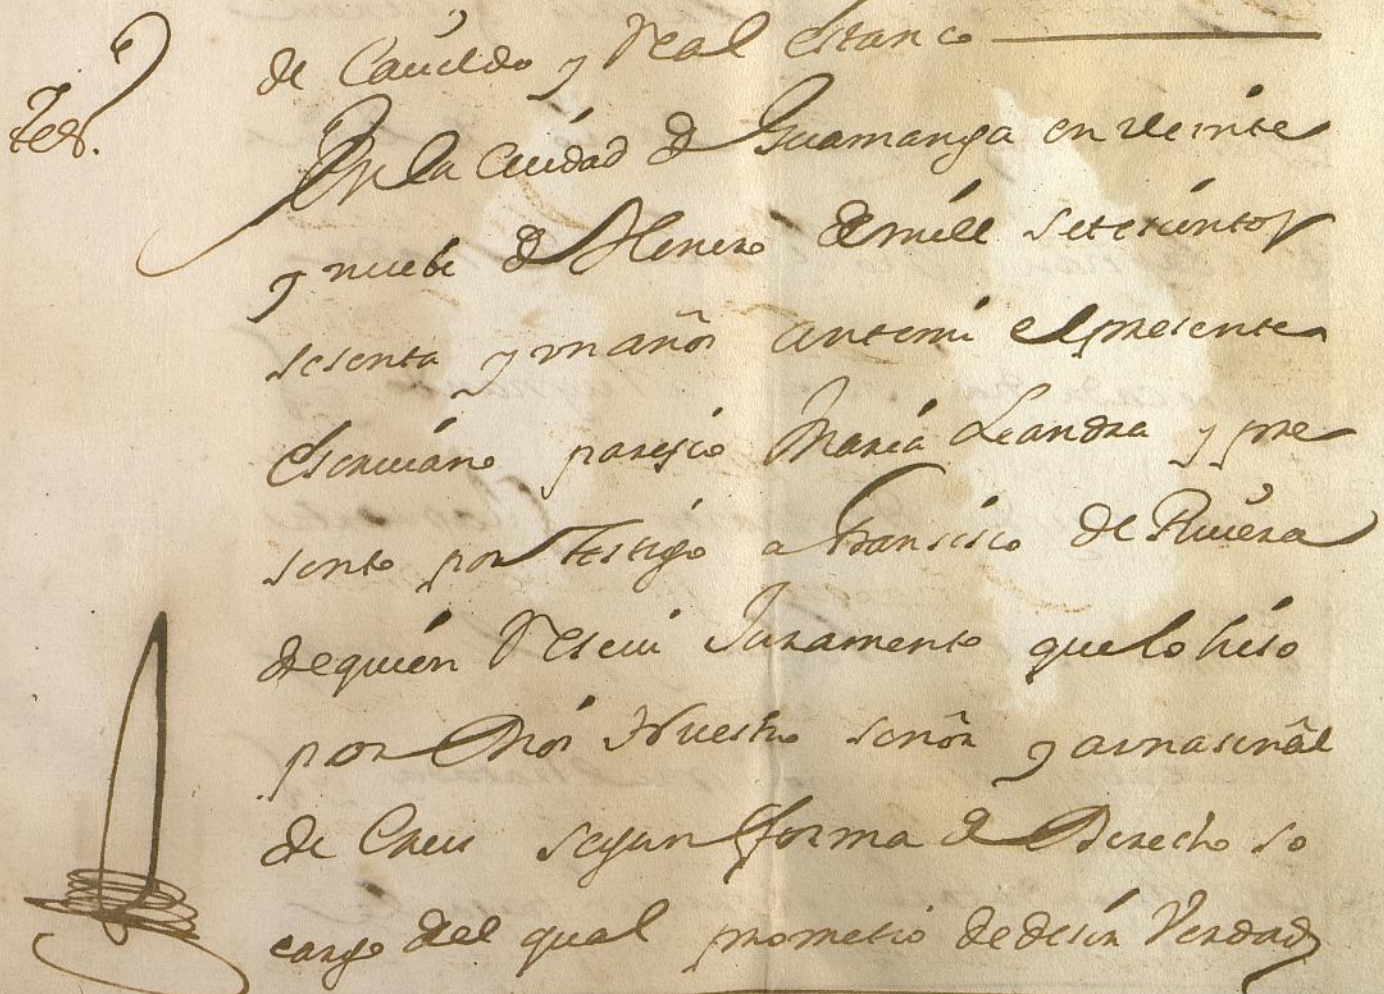 de Cavildo y Real estanco
Tesº.
En la Ciudad de Guamanga en veinte
y nuebe de Henero de mill setesientos
sesenta y un años antemi el presente
escriuano paresio Maria Leandra y pre
sento por testigo a Fransisco de Riuera
de quien Reseui Juramento que lo hiso
por Dios Nuestro señor y a una señal
de Crus segun forma de Derecho so
cargo del qual prometio de desir Verdad